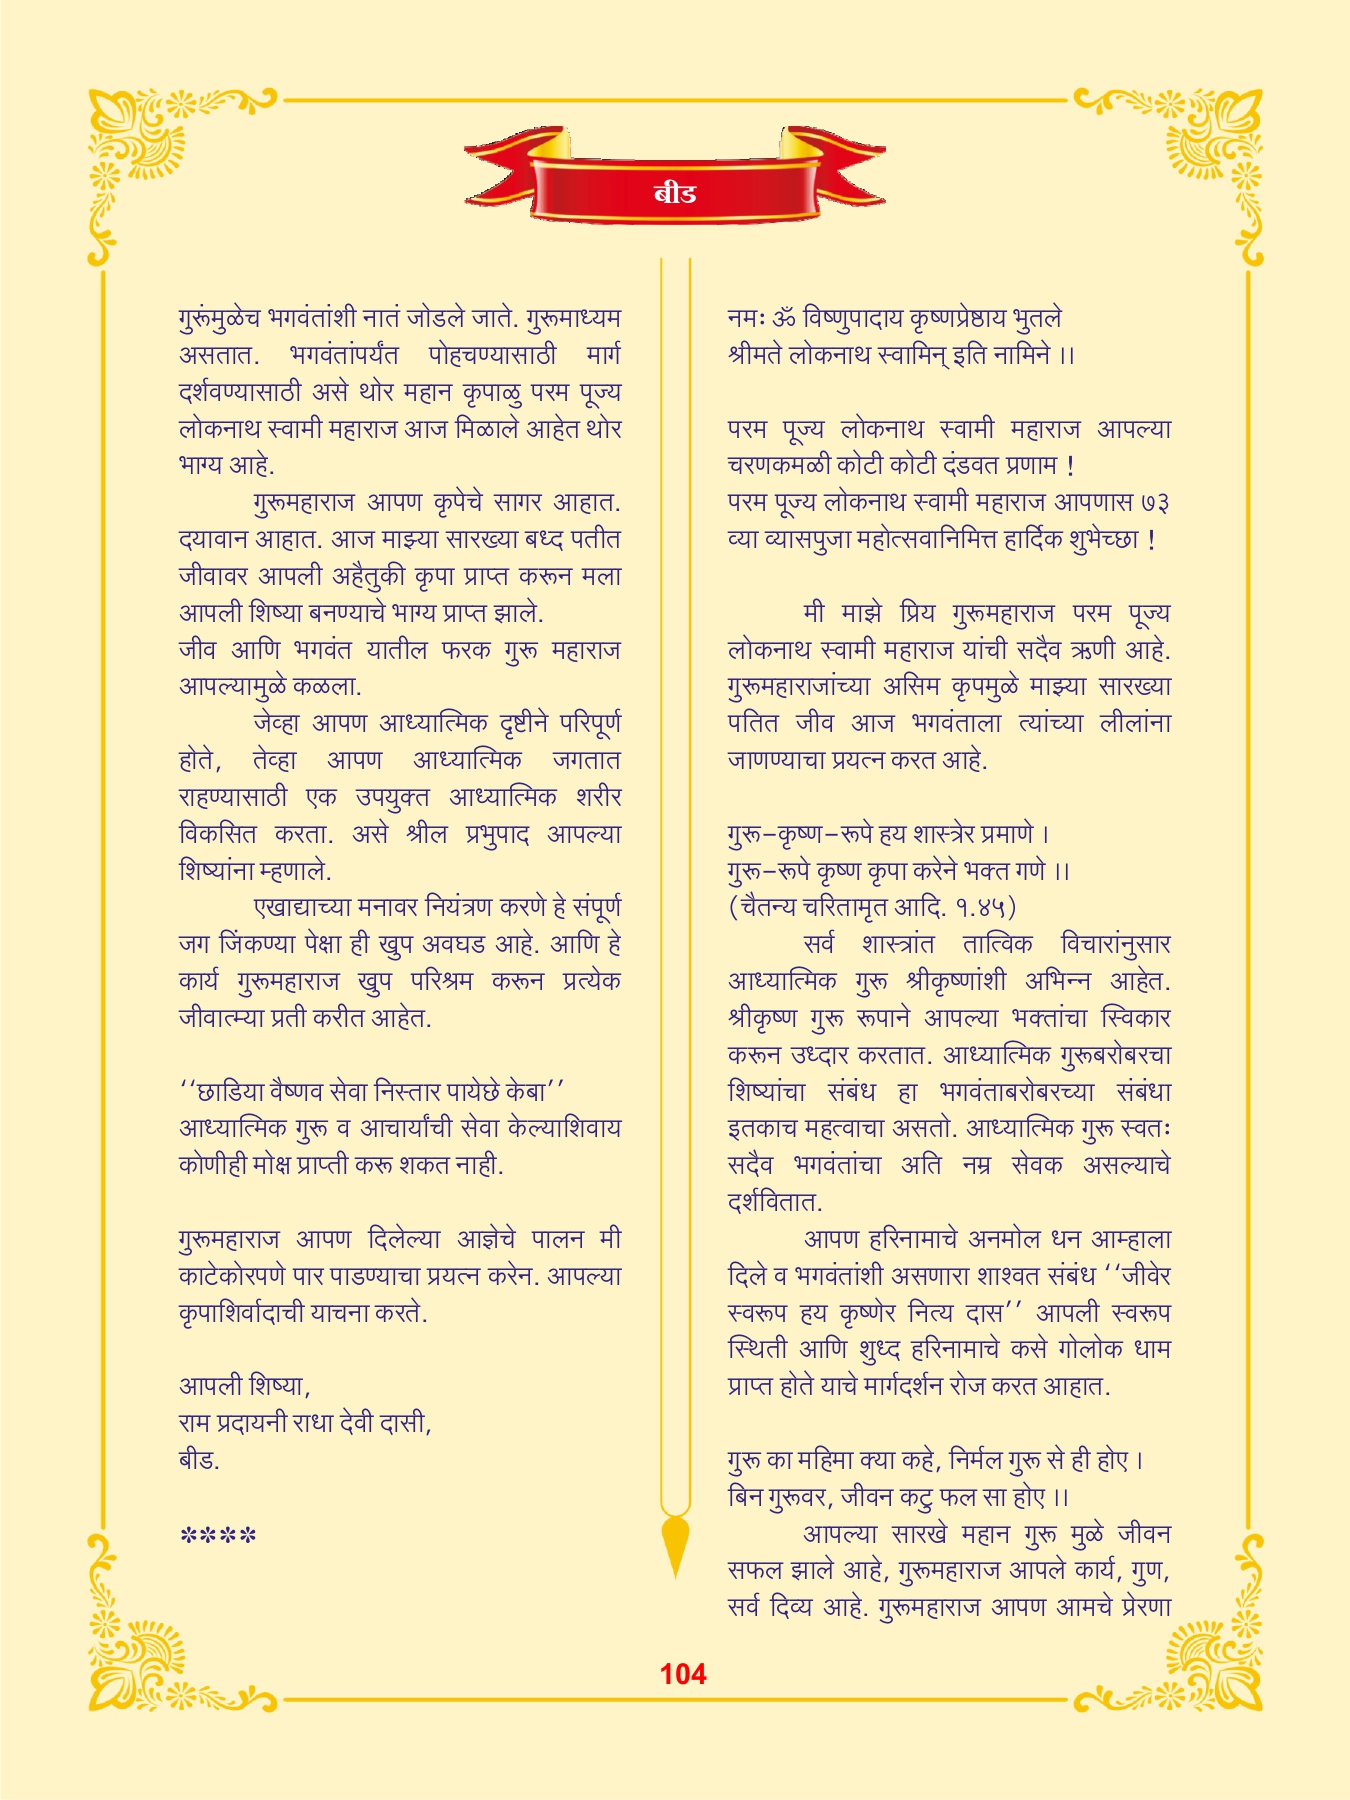 बीड
गुरूंमुळेच भगवंतांशी नातं जोडले जाते. गुरूमाध्यम
असतात. भगवंतांपर्यंत पोहचण्यासाठी मार्ग
दर्शवण्यासाठी असे थोर महान कृपाळु परम पूज्य
लोकनाथ स्वामी महाराज आज मिळाले आहेत थोर
भाग्य आहे.
गुरूमहाराज आपण कृपेचे सागर आहात.
दयावान आहात. आज माझ्या सारख्या बध्द पतीत
जीवावर आपली अहैतुकी कृपा प्राप्त करून मला
आपली शिष्या बनण्याचे भाग्य प्राप्त झाले.
जीव आणि भगवंत यातील फरक गुरू महाराज
आपल्यामुळे कळला.
जेव्हा आपण आध्यात्मिक दृष्टीने परिपूर्ण
होते, तेव्हा आपण आध्यात्मिक जगतात
राहण्यासाठी एक उपयुक्त आध्यात्मिक शरीर
विकसित करता. असे श्रील प्रभुपाद आपल्या
शिष्यांना म्हणाले.
एखाद्याच्या मनावर नियंत्रण करणे हे संपूर्ण
जग जिंकण्या पेक्षा ही खुप अवघड आहे. आणि हे
कार्य गुरूमहाराज खुप परिश्रम करून प्रत्येक
जीवात्म्या प्रती करीत आहेत.
‘‘छाडिया वैष्णव सेवा निस्तार पायेछे केबा’’
आध्यात्मिक गुरू व आचार्यांची सेवा केल्याशिवाय
कोणीही मोक्ष प्राप्ती करू शकत नाही.
गुरूमहाराज आपण दिलेल्या आज्ञेचे पालन मी
काटेकोरपणे पार पाडण्याचा प्रयत्न करेन. आपल्या
कृपाशिर्वादाची याचना करते.
आपली शिष्या,
राम प्रदायनी राधा देवी दासी,
बीड.
****
नमः ॐ विष्णुपादाय कृष्णप्रेष्ठाय भुतले
श्रीमते लोकनाथ स्वामिन् इति नामिने ।।
परम पूज्य लोकनाथ स्वामी महाराज आपल्या
चरणकमळी कोटी कोटी दंडवत प्रणाम !
परम पूज्य लोकनाथ स्वामी महाराज आपणास ७३
व्या व्यासपुजा महोत्सवानिमित्त हार्दिक शुभेच्छा !
मी माझे प्रिय गुरूमहाराज परम पूज्य
लोकनाथ स्वामी महाराज यांची सदैव ऋणी आहे.
गुरूमहाराजांच्या असिम कृपमुळे माझ्या सारख्या
पतित जीव आज भगवंताला त्यांच्या लीलांना
जाणण्याचा प्रयत्न करत आहे.
गुरू-कृष्ण-रूपे हय शास्त्रेर प्रमाणे ।
गुरू-रूपे कृष्ण कृपा करेने भक्त गणे ।।
(चैतन्य चरितामृत आदि. १.४५)
सर्व शास्त्रांत तात्विक विचारांनुसार
आध्यात्मिक गुरू श्रीकृष्णांशी अभिन्न आहेत.
श्रीकृष्ण गुरू रूपाने आपल्या भक्तांचा स्विकार
करून उध्दार करतात. आध्यात्मिक गुरूबरोबरचा
शिष्यांचा संबंध हा भगवंताबरोबरच्या संबंधा
इतकाच महत्वाचा असतो. आध्यात्मिक गुरू स्वतः
सदैव भगवंतांचा अति नम्र सेवक असल्याचे
दर्शवितात.
आपण हरिनामाचे अनमोल धन आम्हाला
दिले व भगवंतांशी असणारा शाश्वत संबंध ‘‘जीवेर
स्वरूप हय कृष्णेर नित्य दास’’ आपली स्वरूप
स्थिती आणि शुध्द हरिनामाचे कसे गोलोक धाम
प्राप्त होते याचे मार्गदर्शन रोज करत आहात.
गुरू का महिमा क्या कहे, निर्मल गुरू से ही होए ।
बिन गुरूवर, जीवन कटु फल सा होए ।।
आपल्या सारखे महान गुरू मुळे जीवन
सफल झाले आहे, गुरूमहाराज आपले कार्य, गुण,
सर्व दिव्य आहे. गुरूमहाराज आपण आमचे प्रेरणा
104